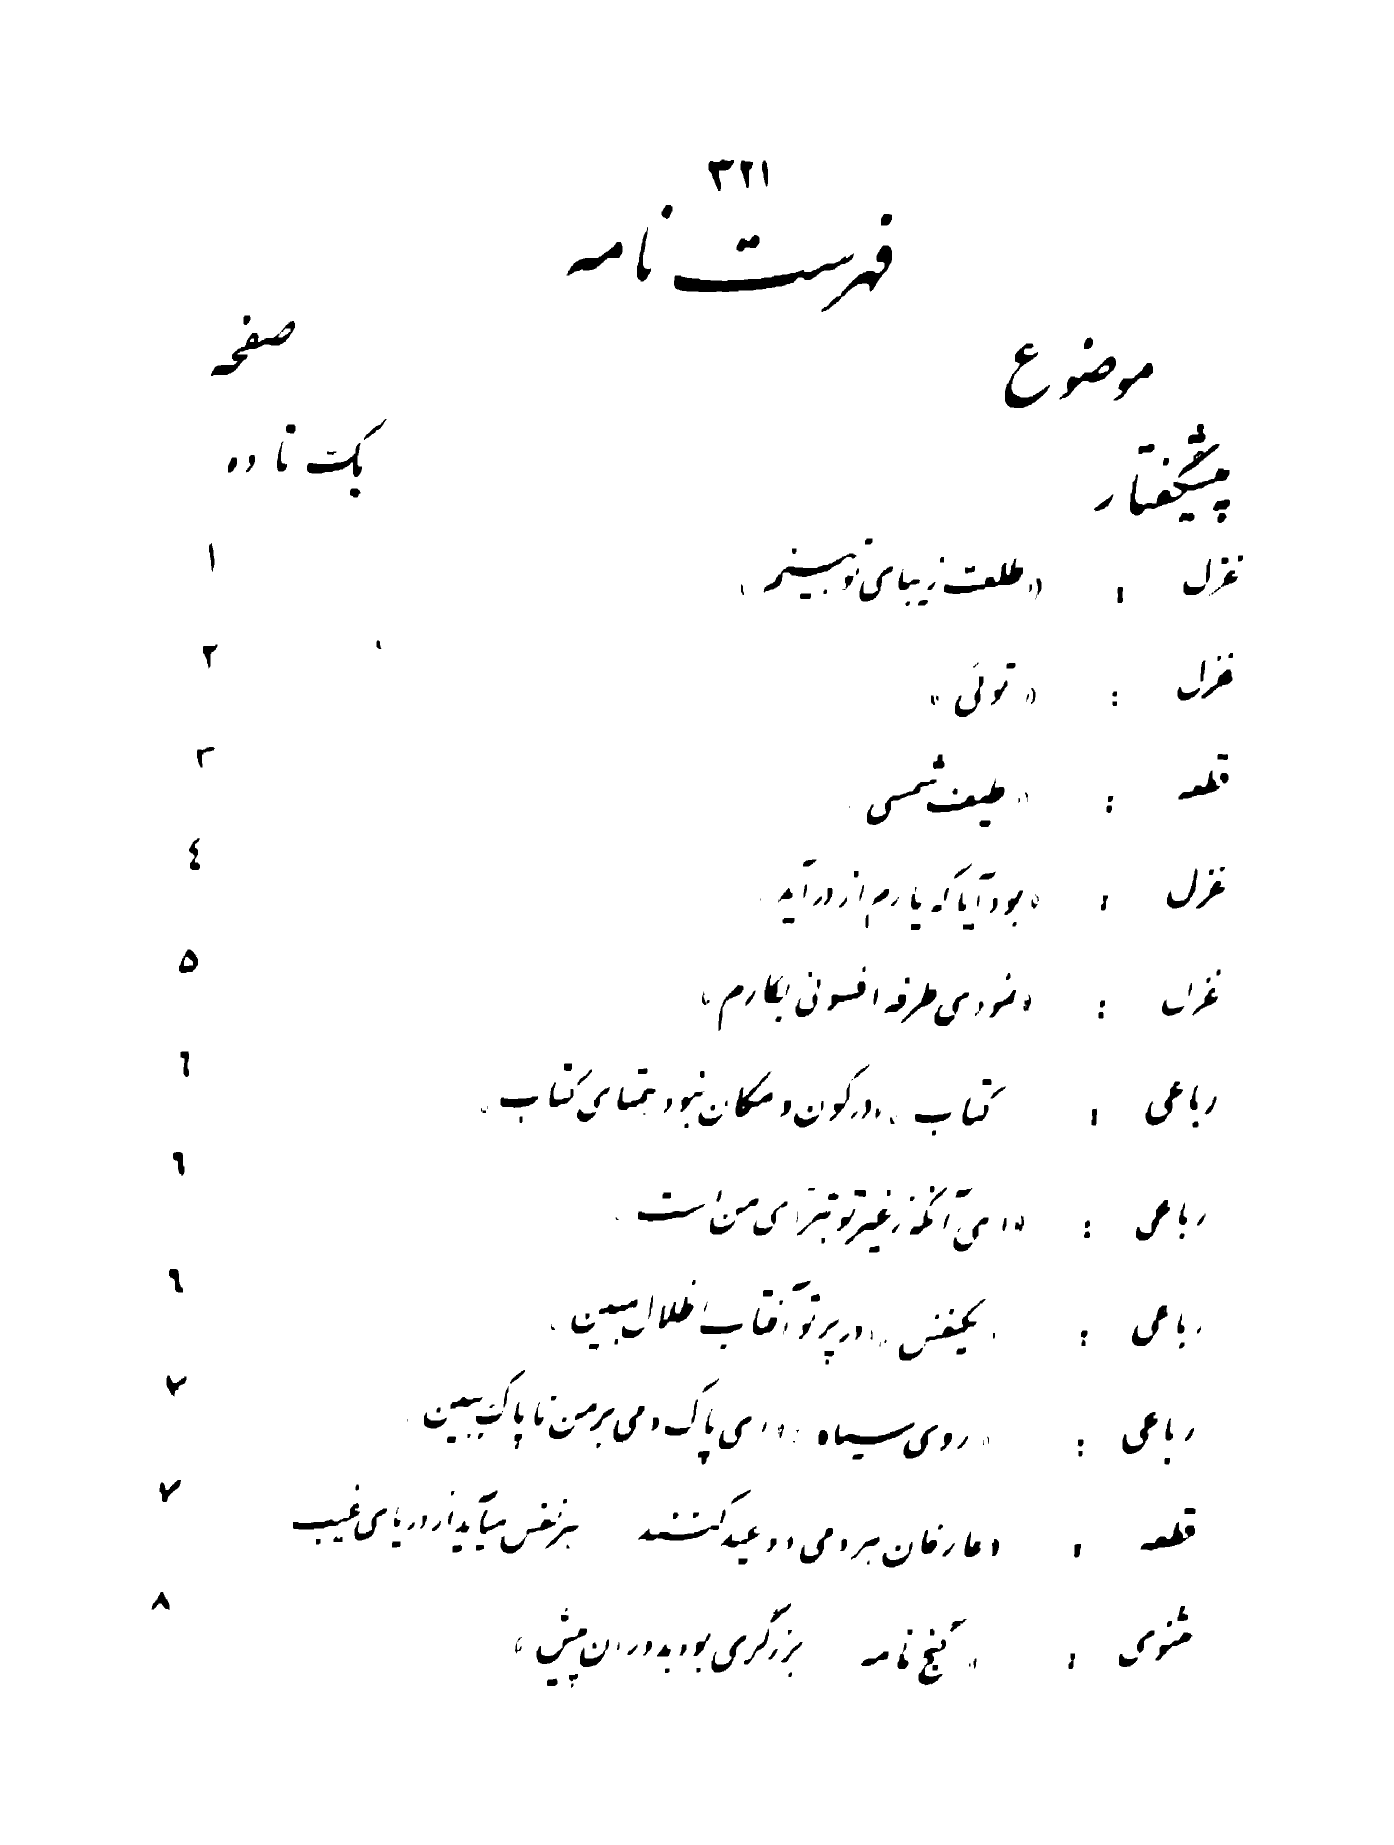 ۳۲۱
فهرست نامه
موضوع صفحه
پیشگفتار یک تا ده
غزل : «طلعت زیبای تو بینم» ۱
غزل : «توئی» ۲
قطعه : «طیف شمسی» ۳
غزل : «بود آیا که یارم از در آید» ٤
غزل : «نمودی طرفه افسونی بکارم» ۵
رباعی : کتاب «در کون و مکان نبود همتای کتاب» ٦
رباعی : «ای آنکه ز غیر تو تبرّای من است» ٦
رباعی : «یکنفس» «در پرتو آفتاب اظلال مبین» ٦
رباعی : «روی سیاه» «ای پاک دمی بر من ناپاک ببین» ۷
قطعه : «عارفان هر دمی دو عید کنند هر نفس میآید از دریای غیب ۷
مثنوی : «گنج نامه بزرگری بود بدوران پیش» ۸